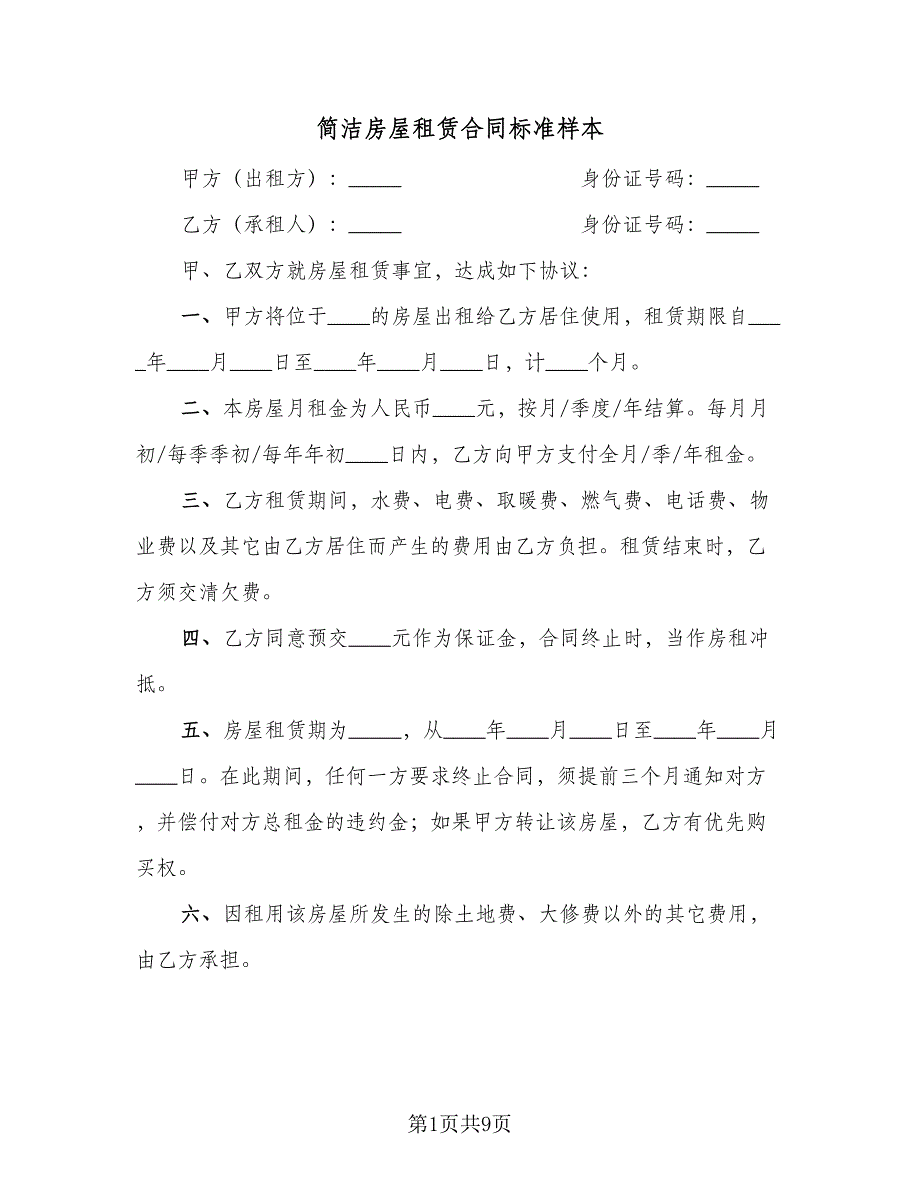 简洁房屋租赁合同标准样本
甲方（出租方）：_____ 身份证号码：_____
乙方（承租人）：_____ 身份证号码：_____
甲、乙双方就房屋租赁事宜，达成如下协议：
一、甲方将位于____的房屋出租给乙方居住使用，租赁期限自___
_年____月____日至____年____月____日，计____个月。
二、本房屋月租金为人民币____元，按月/季度/年结算。每月月
初/每季季初/每年年初____日内，乙方向甲方支付全月/季/年租金。
三、乙方租赁期间，水费、电费、取暖费、燃气费、电话费、物
业费以及其它由乙方居住而产生的费用由乙方负担。租赁结束时，乙
方须交清欠费。
四、乙方同意预交____元作为保证金，合同终止时，当作房租冲
抵。
五、房屋租赁期为_____，从____年____月____日至____年____月
____日。在此期间，任何一方要求终止合同，须提前三个月通知对方
，并偿付对方总租金的违约金；如果甲方转让该房屋，乙方有优先购
买权。
六、因租用该房屋所发生的除土地费、大修费以外的其它费用，
由乙方承担。
第1页共9页